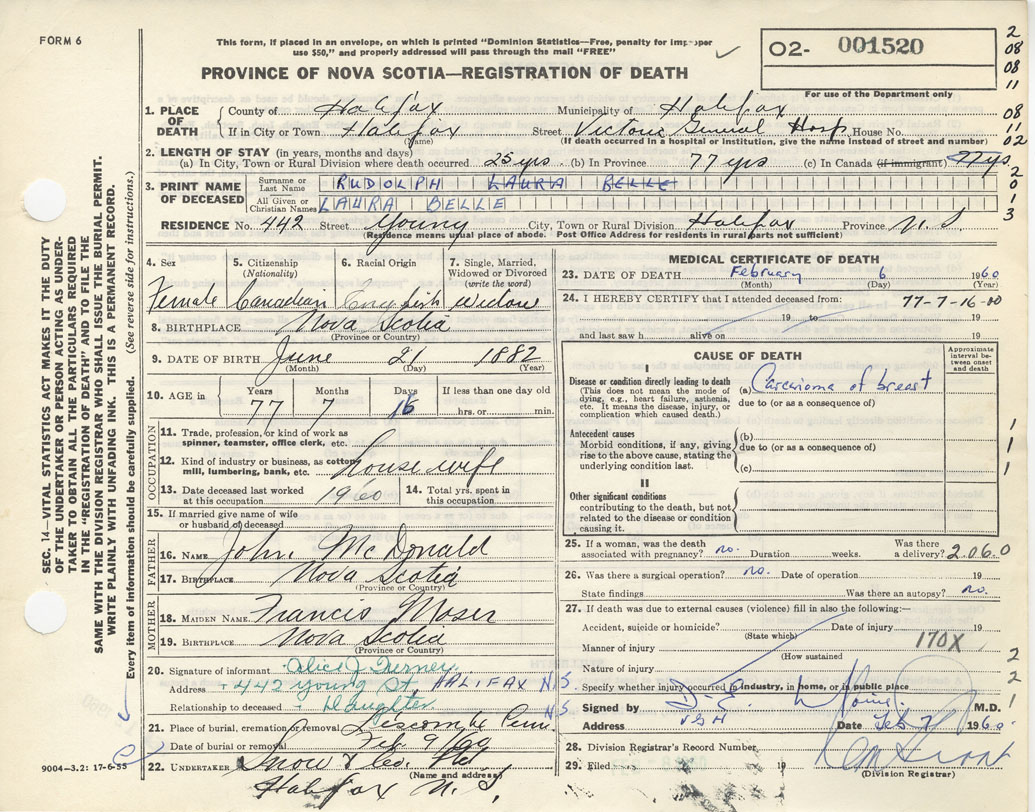 FORM 6
This form, if placed in an envelope, on which is printed "Dominion Statistics—Free, penalty for improper
use $50," and properly addressed will pass through the mail "FREE"
PROVINCE OF NOVA SCOTIA—REGISTRATION OF DEATH
02- 001520
For use of the Department only
2
08
08
11
08
11
02
2
0
1
3
1. PLACE OF DEATH County of Halifax Municipality of Halifax
If in City or Town Halifax Street Victoria General Hosp House No.
(Name) (If death occurred in a hospital or institution, give the name instead of street and number)
2. LENGTH OF STAY (in years, months and days)
(a) In City, Town or Rural Division where death occurred 25 yrs. (b) In Province 77 yrs (c) In Canada (if immigrant) 77 ys.
3. PRINT NAME OF DECEASED Surname or Last Name RUDOLPH LAURA BELLE
All Given or Christian Names LAURA BELLE
RESIDENCE No. 442 Street Young City, Town or Rural Division Halifax Province N.S.
(Residence means usual place of abode. Post Office Address for residents in rural parts not sufficient)
SEC. 14—VITAL STATISTICS ACT MAKES IT THE DUTY
OF THE UNDERTAKER OR PERSON ACTING AS UNDER-
TAKER TO OBTAIN ALL THE PARTICULARS REQUIRED
IN THE "REGISTRATION OF DEATH" AND FILE THE
SAME WITH THE DIVISION REGISTRAR WHO SHALL ISSUE THE BURIAL PERMIT.
WRITE PLAINLY WITH UNFADING INK. THIS IS A PERMANENT RECORD.
Every item of information should be carefully supplied. (See reverse side for instructions.)
4. Sex 5. Citizenship (Nationality) 6. Racial Origin 7. Single, Married, Widowed or Divorced (write the word)
Female Canadian English Widow
8. BIRTHPLACE Nova Scotia
(Province or Country)
9. DATE OF BIRTH June 21 1882
(Month) (Day) (Year)
10. AGE in Years Months Days If less than one day old
77 7 16 hrs. or min.
OCCUPATION
11. Trade, profession, or kind of work as
spinner, teamster, office clerk, etc.
12. Kind of industry or business, as cotton
mill, lumbering, bank, etc. housewife
13. Date deceased last worked at this occupation 1960 14. Total yrs. spent in this occupation
15. If married give name of wife
or husband of deceased
FATHER
16. NAME John McDonald
17. BIRTHPLACE Nova Scotia
(Province or Country)
MOTHER
18. MAIDEN NAME Francis Moser
19. BIRTHPLACE Nova Scotia
(Province or Country)
20. Signature of informant Alice J. Turney
Address 442 Young St, HALIFAX N.S.
Relationship to deceased Daughter
21. Place of burial, cremation or removal Liscombe N S
Date of burial or removal Feb. 9/60
22. UNDERTAKER Snow & Co. Ltd
(Name and address)
Halifax N.S.
9004-3.2: 17-6-55
MEDICAL CERTIFICATE OF DEATH
23. DATE OF DEATH February 6 1960
(Month) (Day)
24. I HEREBY CERTIFY that I attended deceased from: 77-7-16-00
19 to 19
and last saw h alive on 19
CAUSE OF DEATH
Approximate interval between onset and death
I
Disease or condition directly leading to death
(This does not mean the mode of
dying, e.g., heart failure, asthenia,
etc. It means the disease, injury, or
complication which caused death.)
(a) Carcinoma of breast
due to (or as a consequence of)
Antecedent causes
Morbid conditions, if any, giving
rise to the above cause, stating the
underlying condition last.
(b)
due to (or as a consequence of)
(c)
II
Other significant conditions
contributing to the death, but not
related to the disease or condition
causing it.
1
1
1
25. If a woman, was the death
associated with pregnancy? no. Duration weeks. Was there a delivery? 2060
26. Was there a surgical operation? no. Date of operation 19
State findings Was there an autopsy? no.
27. If death was due to external causes (violence) fill in also the following:—
Accident, suicide or homicide? Date of injury 19
(State which)
Manner of injury 170X
(How sustained
Nature of injury
Specify whether injury occurred in industry, in home, or in public place
2
2
1
Signed by D. E. M.D.
Address VGH Date Feb 7 1960
28. Division Registrar's Record Number
29. Filed 19
(Division Registrar)